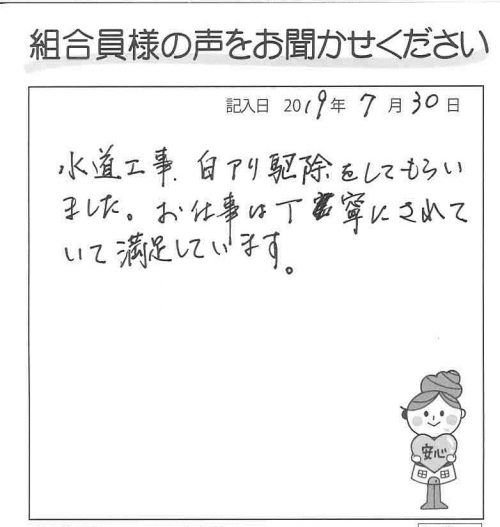 組合員様の声をお聞かせください
記入日 2019年 7月30日
水道工事、白アリ駆除をしてもらい
ました。お仕事は丁寧にされて
いて満足しています。
安心